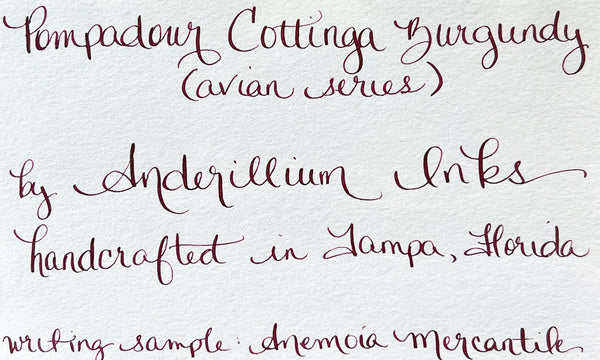 Pompadour Cottinga Burgundy
(avian series)
by Anderillium Inks
handcrafted in Tampa, Florida
writing sample: Anemoia Mercantile